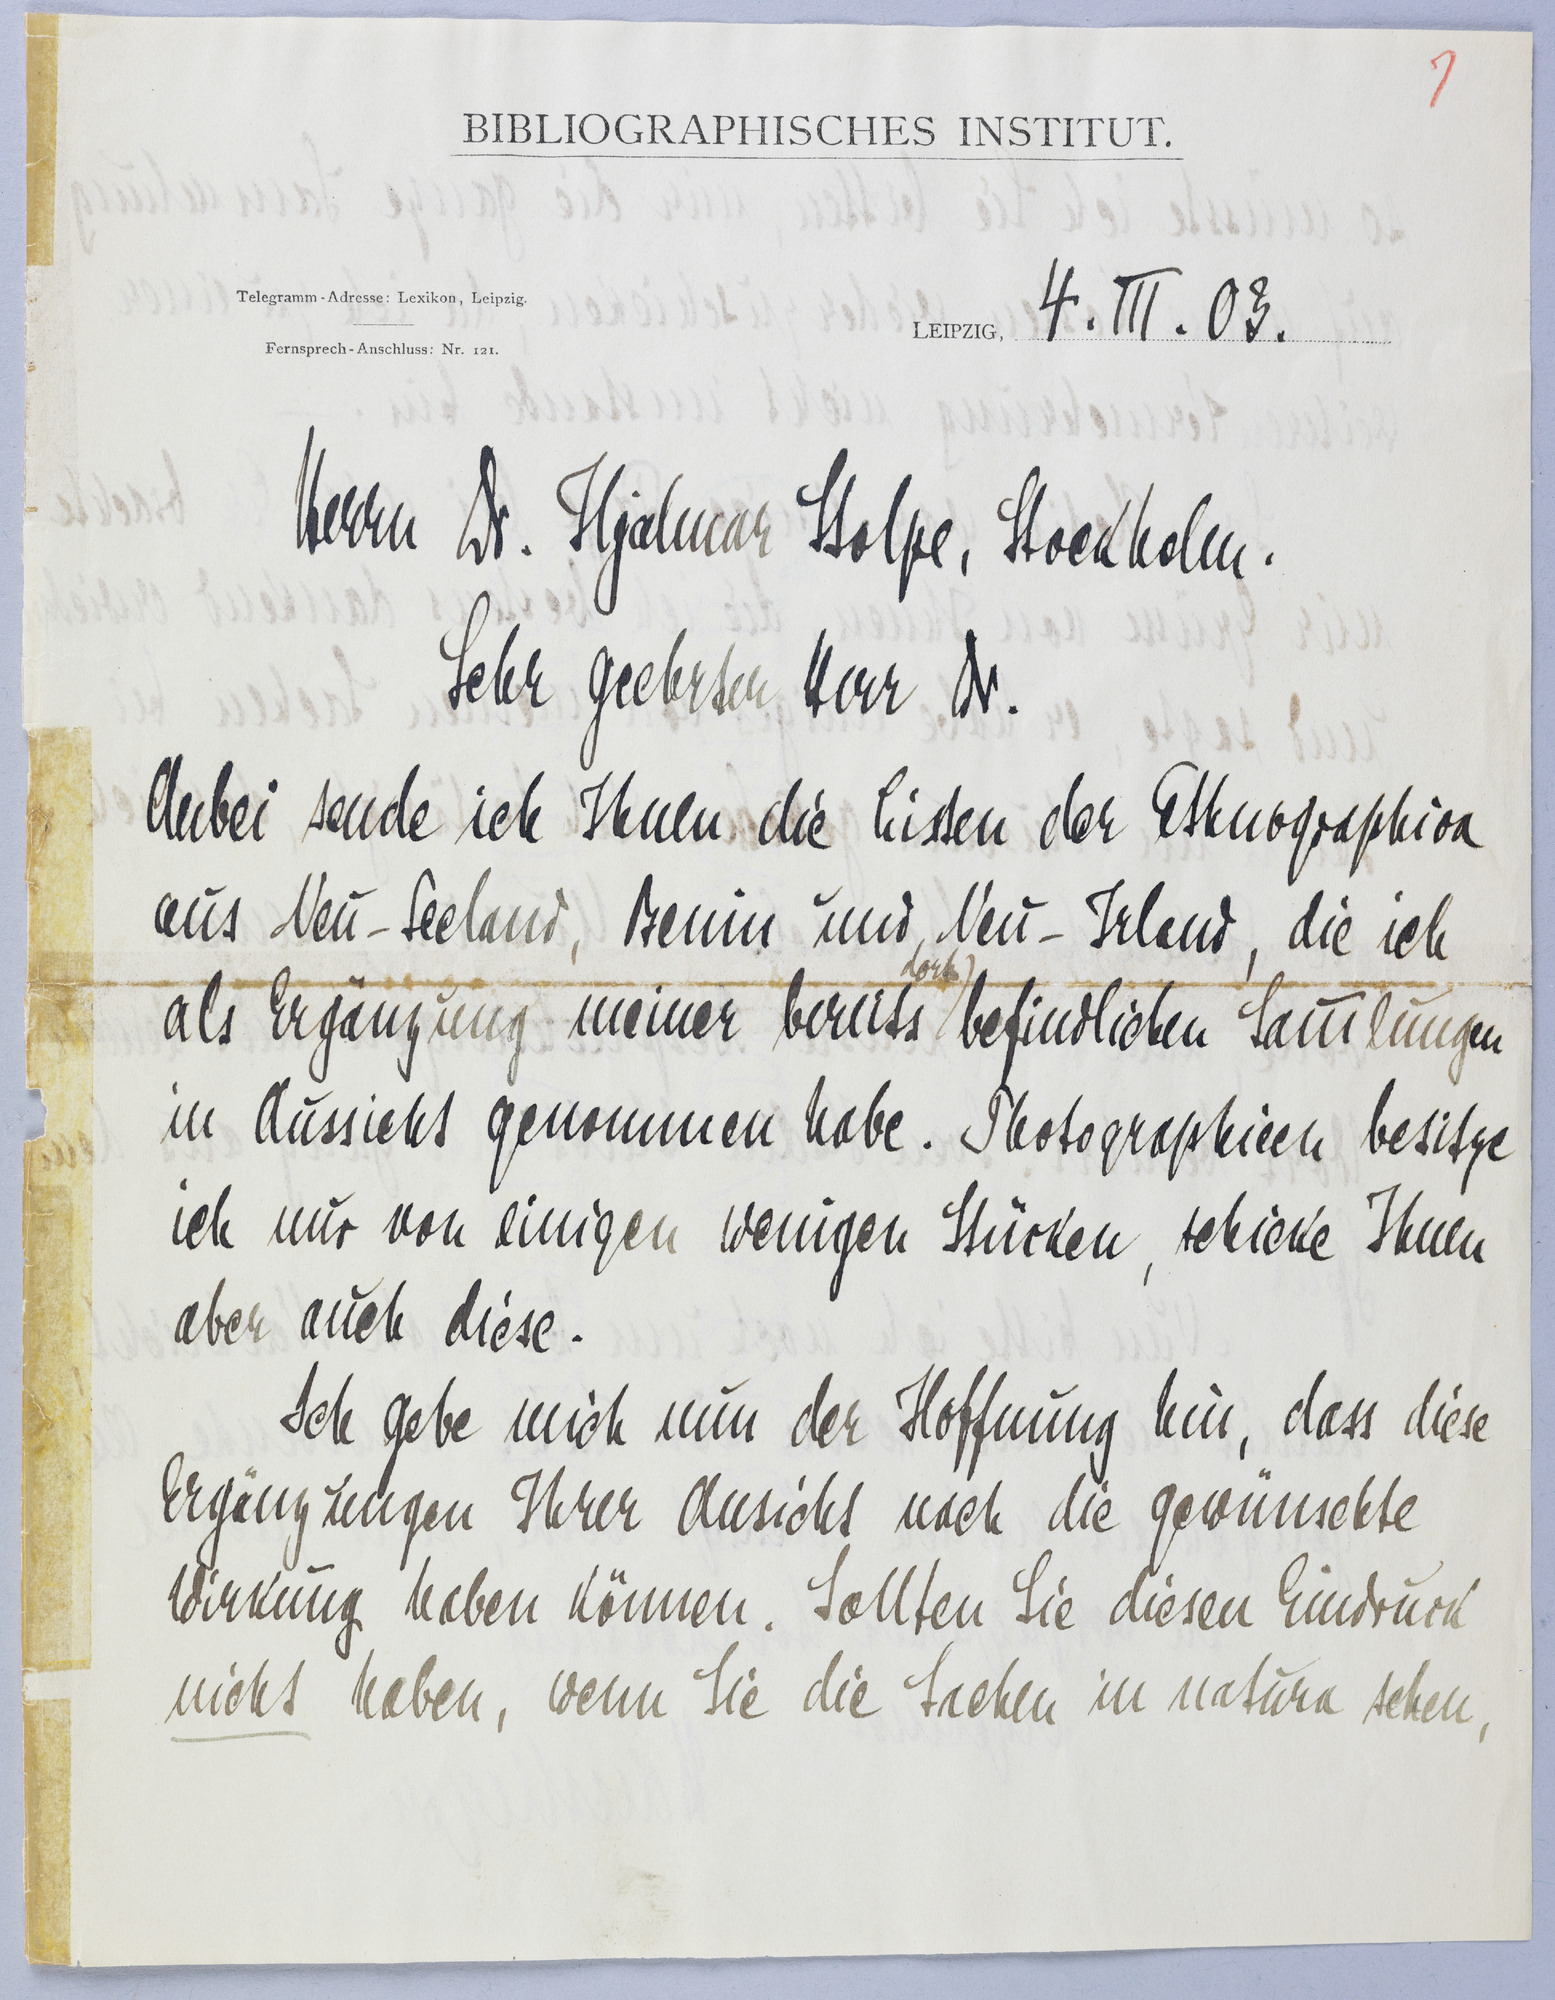 7
BIBLIOGRAPHISCHES INSTITUT.
Telegramm-Adresse: Lexikon, Leipzig.
Fernsprech-Anschluss: Nr. 121.
LEIPZIG, 4. III. 03.
Herrn Dr. Hjalmar Stolpe, Stockholm.
Sehr geehrter Herr Dr.
Anbei sende ich Ihnen die Listen der Ethnographica
aus Neu-Seeland, Benin und Neu-Irland, die ich
dort
als Ergänzung meiner bereits befindlichen Sam̄lungen
in Aussicht genommen habe. Photographieen besitze
ich nur von einigen wenigen Stücken, schicke Ihnen
aber auch diese.
Ich gebe mich nun der Hoffnung hin, dass diese
Ergänzungen Ihrer Ansicht nach die gewünschte
Wirkung haben können. Sollten Sie diesen Eindruck
nicht haben, wenn Sie die Sachen in natura sehen,